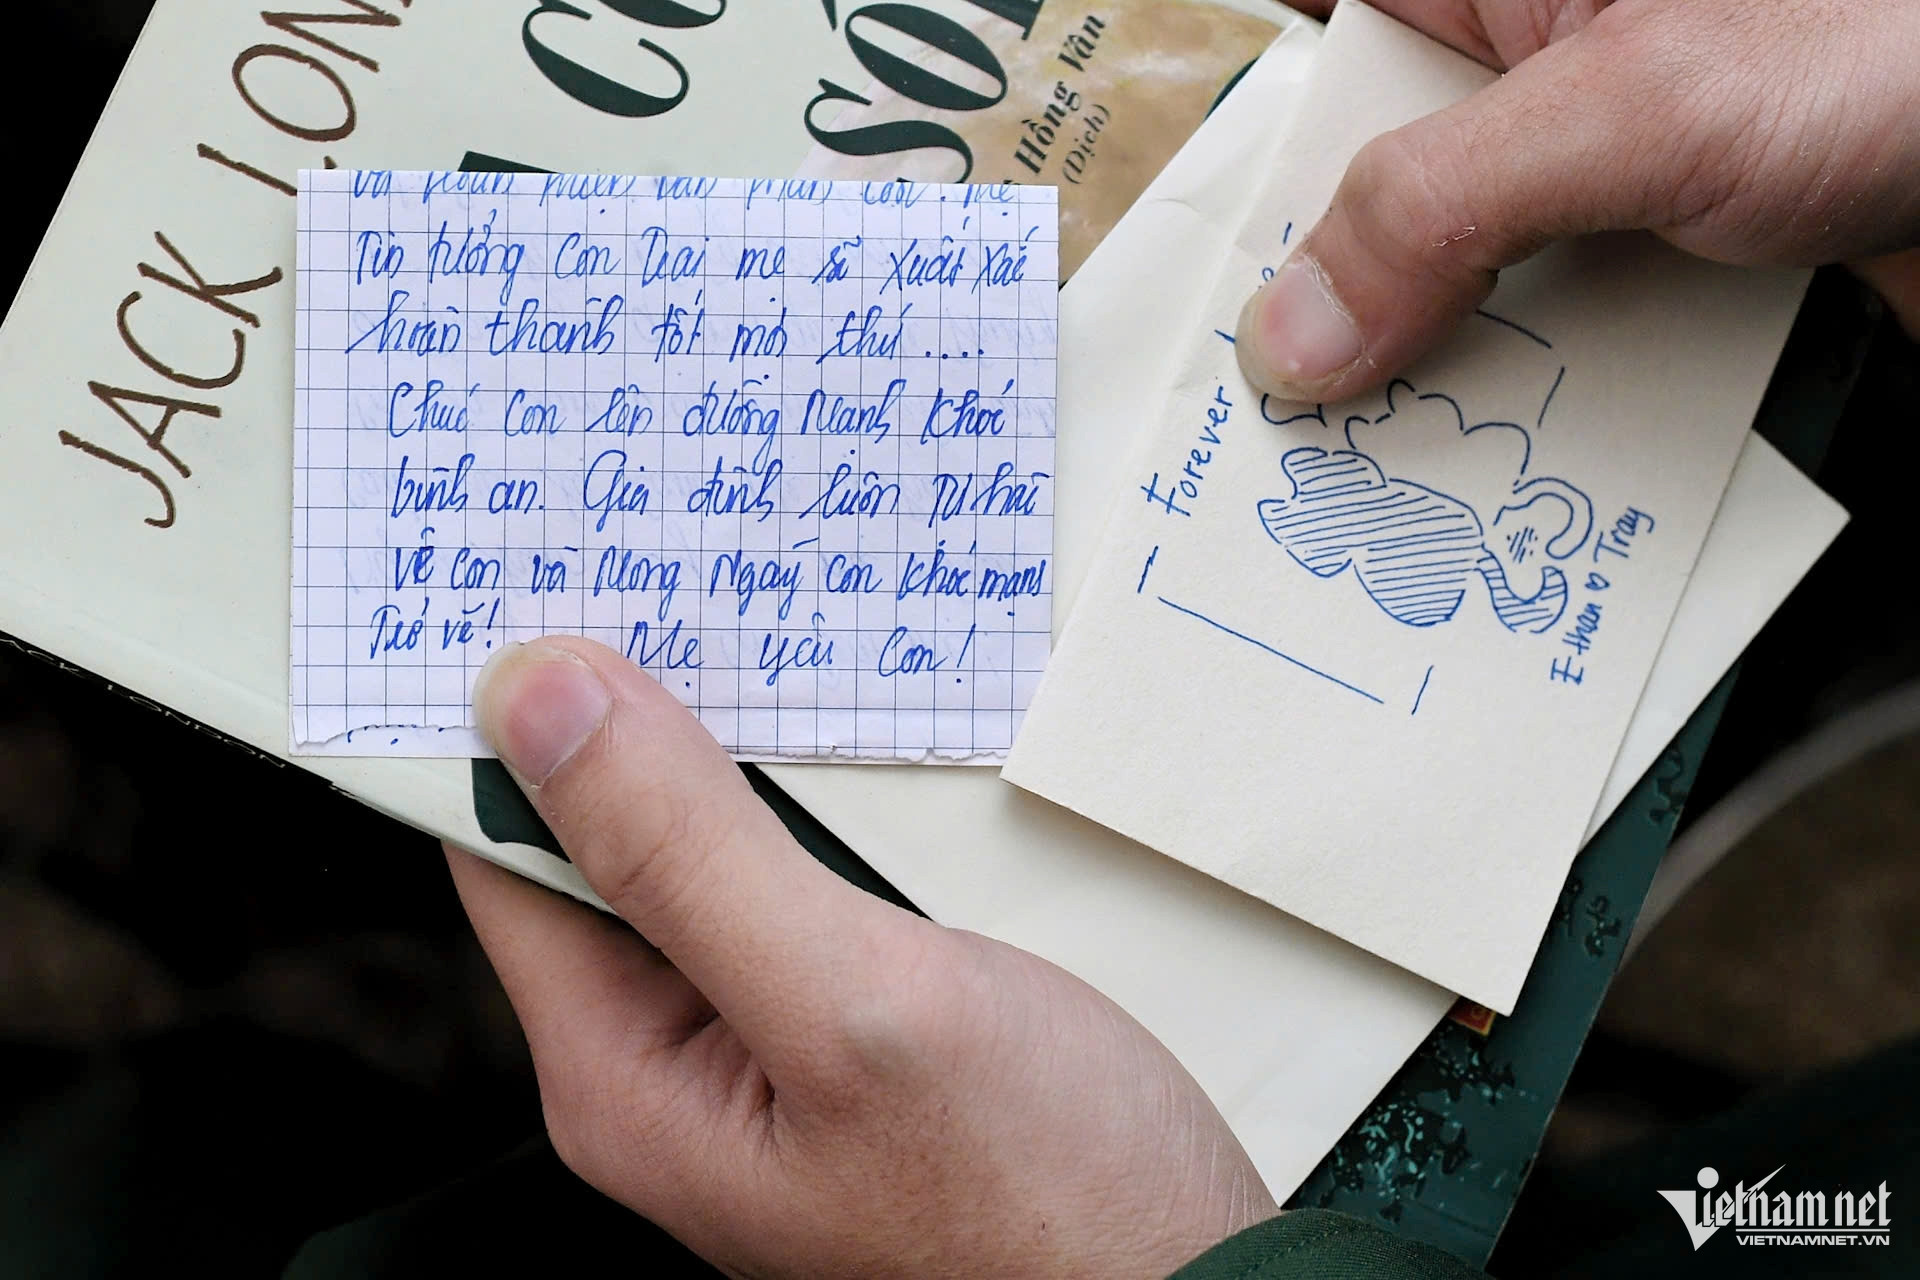 JACK LON
CO
SÓI
Hồng Vân
(Dịch)
JACK LONDON
Tin tưởng con trai mẹ sẽ xuất xắc
hoàn thành tốt mọi thứ ....
Chúc con lên đường mạnh khỏe
bình an. Gia đình luôn tự hào
về con và mong ngày con khỏe mạnh
Trở về!
Mẹ yêu con!
Forever
Ethan Tray
Vietnamnet
VIETNAMNET.VN